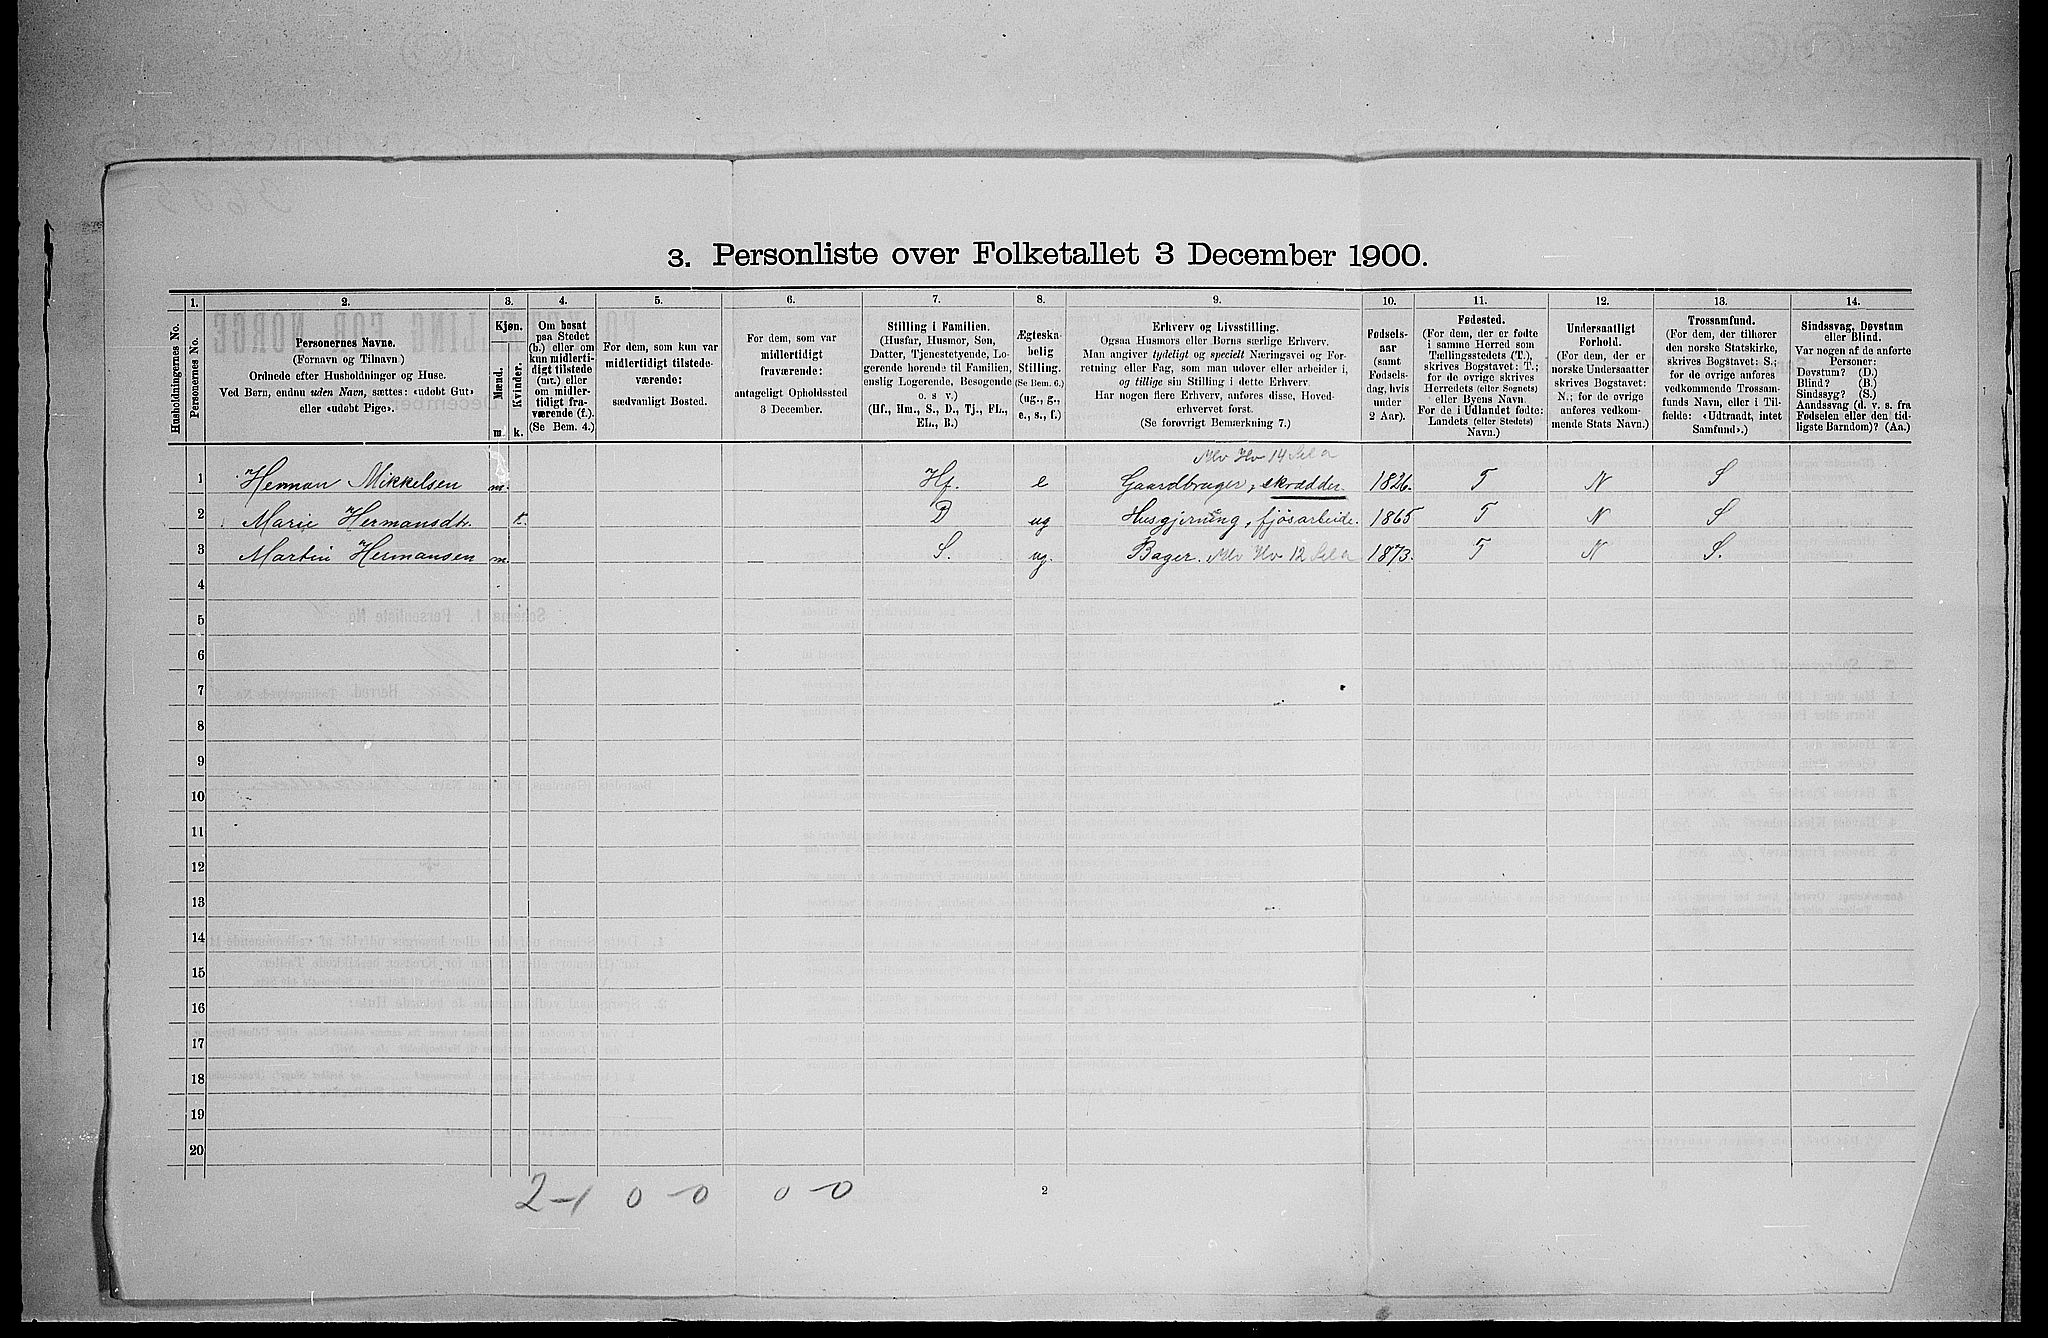 3. Personliste over Folketallet 3 December 1900.
1. 2. 3. 4. 5. 6. 7. 8. 9. 10. 11. 12. 13. 14.
Husholdningernes No.
Personernes No.
Personernes Navne.
(Fornavn og Tilnavn.)
Ordnede efter Husholdninger og Huse.
Ved Børn, endnu uden Navn, sættes: «udøbt Gut»
eller «udøbt Pige».
Kjøn.
Mænd.
Kvinder.
m. k.
Om bosat
paa Stedet
(b.) eller om
kun midlerti-
digt tilstede
(mt.) eller
om midler-
tidigt fra-
værende (f.).
(Se Bem. 4.)
For dem, som kun var
midlertidigt tilstede-
værende:
sædvanligt Bosted.
For dem, som var
midlertidigt
fraværende:
antageligt Opholdssted
3 December.
Stilling i Familien.
(Husfar, Husmor, Søn,
Datter, Tjenestetyende, Lo-
gerende hørende til Familien,
enslig Logerende, Besøgende
o. s v.)
(Hf., Hm., S., D., Tj., FL.,
EL., B.)
Ægteska-
belig
Stilling.
(Se Bem. 6.)
(ug., g.,
e., s., f.)
Erhverv og Livsstilling.
Ogsaa Husmors eller Børns særlige Erhverv.
Man angiver tydeligt og specielt Næringsvei og For-
retning eller Fag, som man udøver eller arbeider i,
og tillige sin Stilling i dette Erhverv.
Har nogen flere Erhverv, anføres disse, Hoved-
erhvervet først.
(Se forøvrigt Bemærkning 7.)
Fødsels-
aar
(samt
Fødsels-
dag, hvis
under
2 Aar).
Fødested.
(For dem, der er fødte
i samme Herred som
Tællingsstedets (T.),
skrives Bogstavet: T.;
for de øvrige skrives
Herredets (eller Sognets)
eller Byens Navn.
For de i Udlandet fødte:
Landets (eller Stedets)
Navn.)
Undersaatligt
Forhold.
(For dem, der er
norske Undersaatter
skrives Bogstavet:
N.; for de øvrige
anføres vedkom-
mende Stats Navn.)
Trossamfund.
(For dem, der tilhører
den norske Statskirke,
skrives Bogstavet: S.;
for de øvrige anføres
vedkommende Trossam-
funds Navn, eller i Til-
fælde: «Udtraadt, intet
Samfund».)
Sindssvag, Døvstum
eller Blind.
Var nogen af de anførte
Personer:
Døvstum? (D.)
Blind? (B.)
Sindssyg? (S.)
Aandssvag (d. v. s. fra
Fødselen eller den tid-
ligste Barndom)? (Aa.)
1 Herman Mikkelsen m. Hf. e Gaardbruger, skrædder. 1826. T N S
2 Marie Hermansdt. k. D ug Husgjerning, fjøsarbeide. 1865 T N S
3 Martin Hermansen m. S. ug. Bager. 1873. T N S.
4
5
6
7
8
9
10
11
12
13
14
15
16
17
18
19
20
2-1 0-0 0-0
2